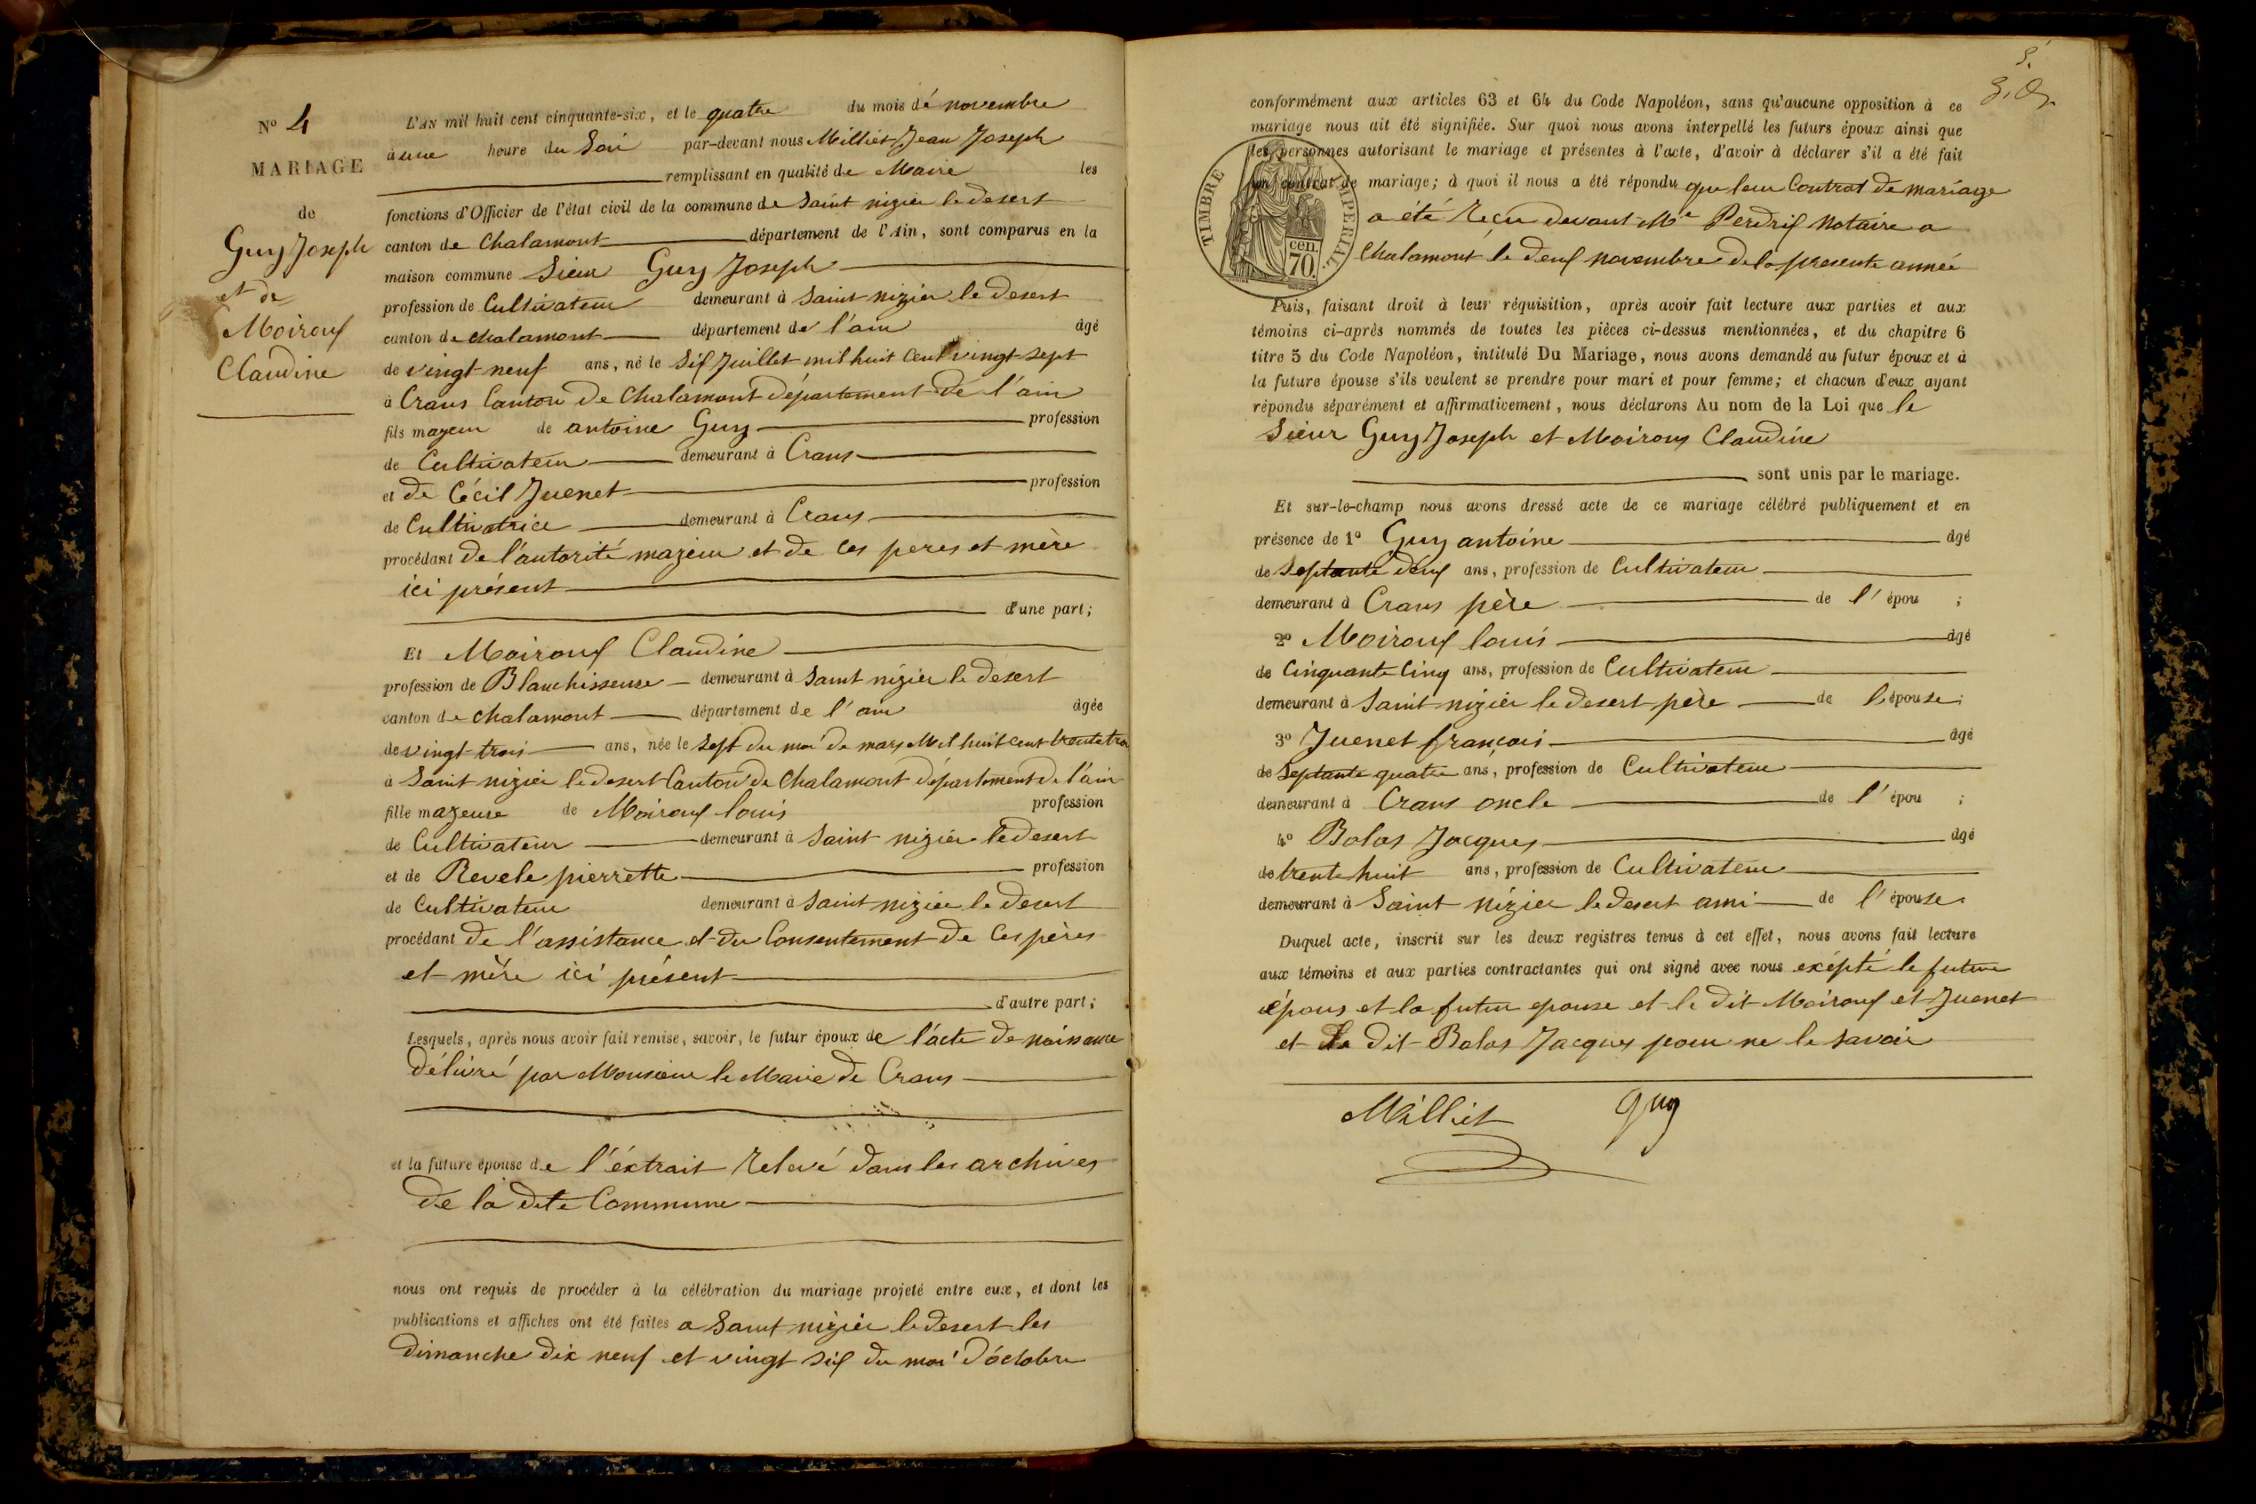 N° 4
MARIAGE
de
Guy Joseph
et de
Moiroux
Claudine
L'AN mil huit cent cinquante-six, et le quatre du mois de novembre
à une heure du Soir par-devant nous Milliet Jean Joseph
remplissant en qualité de Maire les
fonctions d'Officier de l'état civil de la commune de Saint nizier le desert
canton de Chalamont département de l'Ain, sont comparus en la
maison commune Sieur Guy Joseph
profession de Cultivateur demeurant à Saint nizier le desert
canton de chalamont département de l'ain âgé
de vingt neuf ans, né le Six Juillet mil huit cent vingt sept
à Crans Canton de Chalamont département de l'ain
fils majeur de antoine Guy profession
de Cultivateur demeurant à Crans
et de Cécil Juenet profession
de Cultivatrice demeurant à Crans
procédant de l'autorité majeur et de ces peres et mère
ici présent
d'une part;
Et Moiroux Claudine
profession de Blanchisseuse demeurant à Saint nizier le desert
canton de chalamont département de l'ain âgée
de vingt trois ans, née le Sept du moi de mars Mil huit cent trente trois
à Saint nizier le desert Canton de Chalamont département de l'ain
fille majeure de Moiroux louis profession
de Cultivateur demeurant à Saint nizier le desert
et de Revele pierrette profession
de Cultivateur demeurant à Saint nizier le desert
procédant de l'assistance et du Consentement de Ces pères
et mère ici présent
d'autre part;
Lesquels, après nous avoir fait remise, savoir, le futur époux de l'acte de naissance
délivré par Monsieur le Maire de Crans
et la future épouse de l'éxtrait relevé dans les archives
de la dite Commune
nous ont requis de procéder à la célébration du mariage projeté entre eux, et dont les
publications et affiches ont été faites a Saint nizier le desert les
dimanche dix neuf et vingt six du moi d'octobre
5.
conformément aux articles 63 et 64 du Code Napoléon, sans qu'aucune opposition à ce
mariage nous ait été signifiée. Sur quoi nous avons interpellé les futurs époux ainsi que
les personnes autorisant le mariage et présentes à l'acte, d'avoir à déclarer s'il a été fait
un contrat de mariage; à quoi il nous a été répondu que leur Contrat de mariage
a été reçu devant Me Perdrix Notaire a
Chalamont le deux novembre de la presente année
TIMBRE IMPERIAL.
cen.
70.
Puis, faisant droit à leur réquisition, après avoir fait lecture aux parties et aux
témoins ci-après nommés de toutes les pièces ci-dessus mentionnées, et du chapitre 6
titre 5 du Code Napoléon, intitulé Du Mariage, nous avons demandé au futur époux et à
la future épouse s'ils veulent se prendre pour mari et pour femme; et chacun d'eux ayant
répondu séparément et affirmativement, nous déclarons Au nom de la Loi que le
Sieur Guy Joseph et Moiroux Claudine
sont unis par le mariage.
Et sur-le-champ nous avons dressé acte de ce mariage célébré publiquement et en
présence de 1° Guy antoine âgé
de Septante deux ans, profession de Cultivateur
demeurant à Crans père de l'épou ;
2° Moiroux louis âgé
de Cinquante Cinq ans, profession de Cultivateur
demeurant à Saint nizier le desert père de l'épouse;
3° Juenet françois âgé
de Septante quatre ans, profession de Cultivateur
demeurant à Crans oncle de l'épou ;
4° Bolas Jacques âgé
de trente huit ans, profession de Cultivateur
demeurant à Saint nizier le desert ami de l'épouse.
Duquel acte, inscrit sur les deux registres tenus à cet effet, nous avons fait lecture
aux témoins et aux parties contractantes qui ont signé avec nous exépté le future
épous et la futur epouse et le dit Moiroux et Juenet
et le dit Bolas Jacques pour ne le savoir
Milliet guy